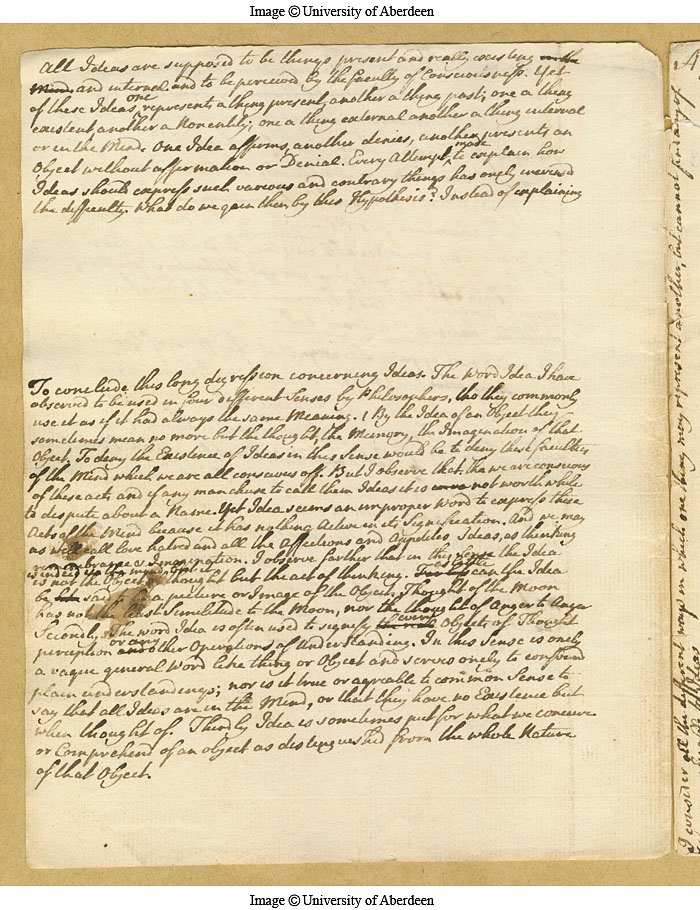 Image © University of Aberdeen
All Ideas are supposed to be things present and really existing in the
Mind and internal and to be perceived by the faculty of Consciousness. Yet
of these Ideas one represents a thing present, another a thing past; one a thing
existent another a Nonentity; one a thing external another a thing internal
or in the Mind. One Idea affirms, another denies, another presents an
Object without affirmation or Denial. Every Attempt made to explain how
Ideas should express such various and contrary things has onely increased
the difficulty. What do we gain then by this Hypothesis? Instead of explaining
To conclude this long digression concerning Ideas. The word Idea I have
observed to be used in four different Senses by Philosophers, tho they commonly
use it as if it had always the same Meaning. 1 By the Idea of an Object they
sometimes mean no more but the thought, the Memory, the Imagination of that
Object. To deny the Existence of Ideas in this Sense would be to deny these faculties
of the Mind which we are all conscious off. But I observe that, tho we are conscious
of these acts and if any man chuse to call them Ideas it is not worth while
to dispute about a Name. Yet Idea seems an improper Word to express these
Acts of the Mind because it has nothing Active in its Signification. And we may
as well call love hatred and all the Affections and Appetites Ideas, as thinking
Imagination. I observe farther that in this Sense the Idea
is indeed in the mind, but it
is not the Object of thought but the act of thinking. as little can the Idea
be said a picture or Image of the Object, Thought of the Moon
has not the least Similitude to the Moon, nor the thought of Anger to Anger
Secondly, The word Idea is often used to signify every Object of Thought
perception or any other Operations of Understanding. In this Sense is onely
a vague general Word like thing or Object and serves onely to confound
plain understandings; nor is it true or agreable to common Sense to
say that all Ideas are in the Mind, or that they have no Existence but
when thought of. Thirdly Idea is sometimes put for what we conceive
or Comprehend of an object as distinguished from the whole Nature
of that Object.
I consider all the different ways in which one thing may represent another, but cannot find any of
Image © University of Aberdeen